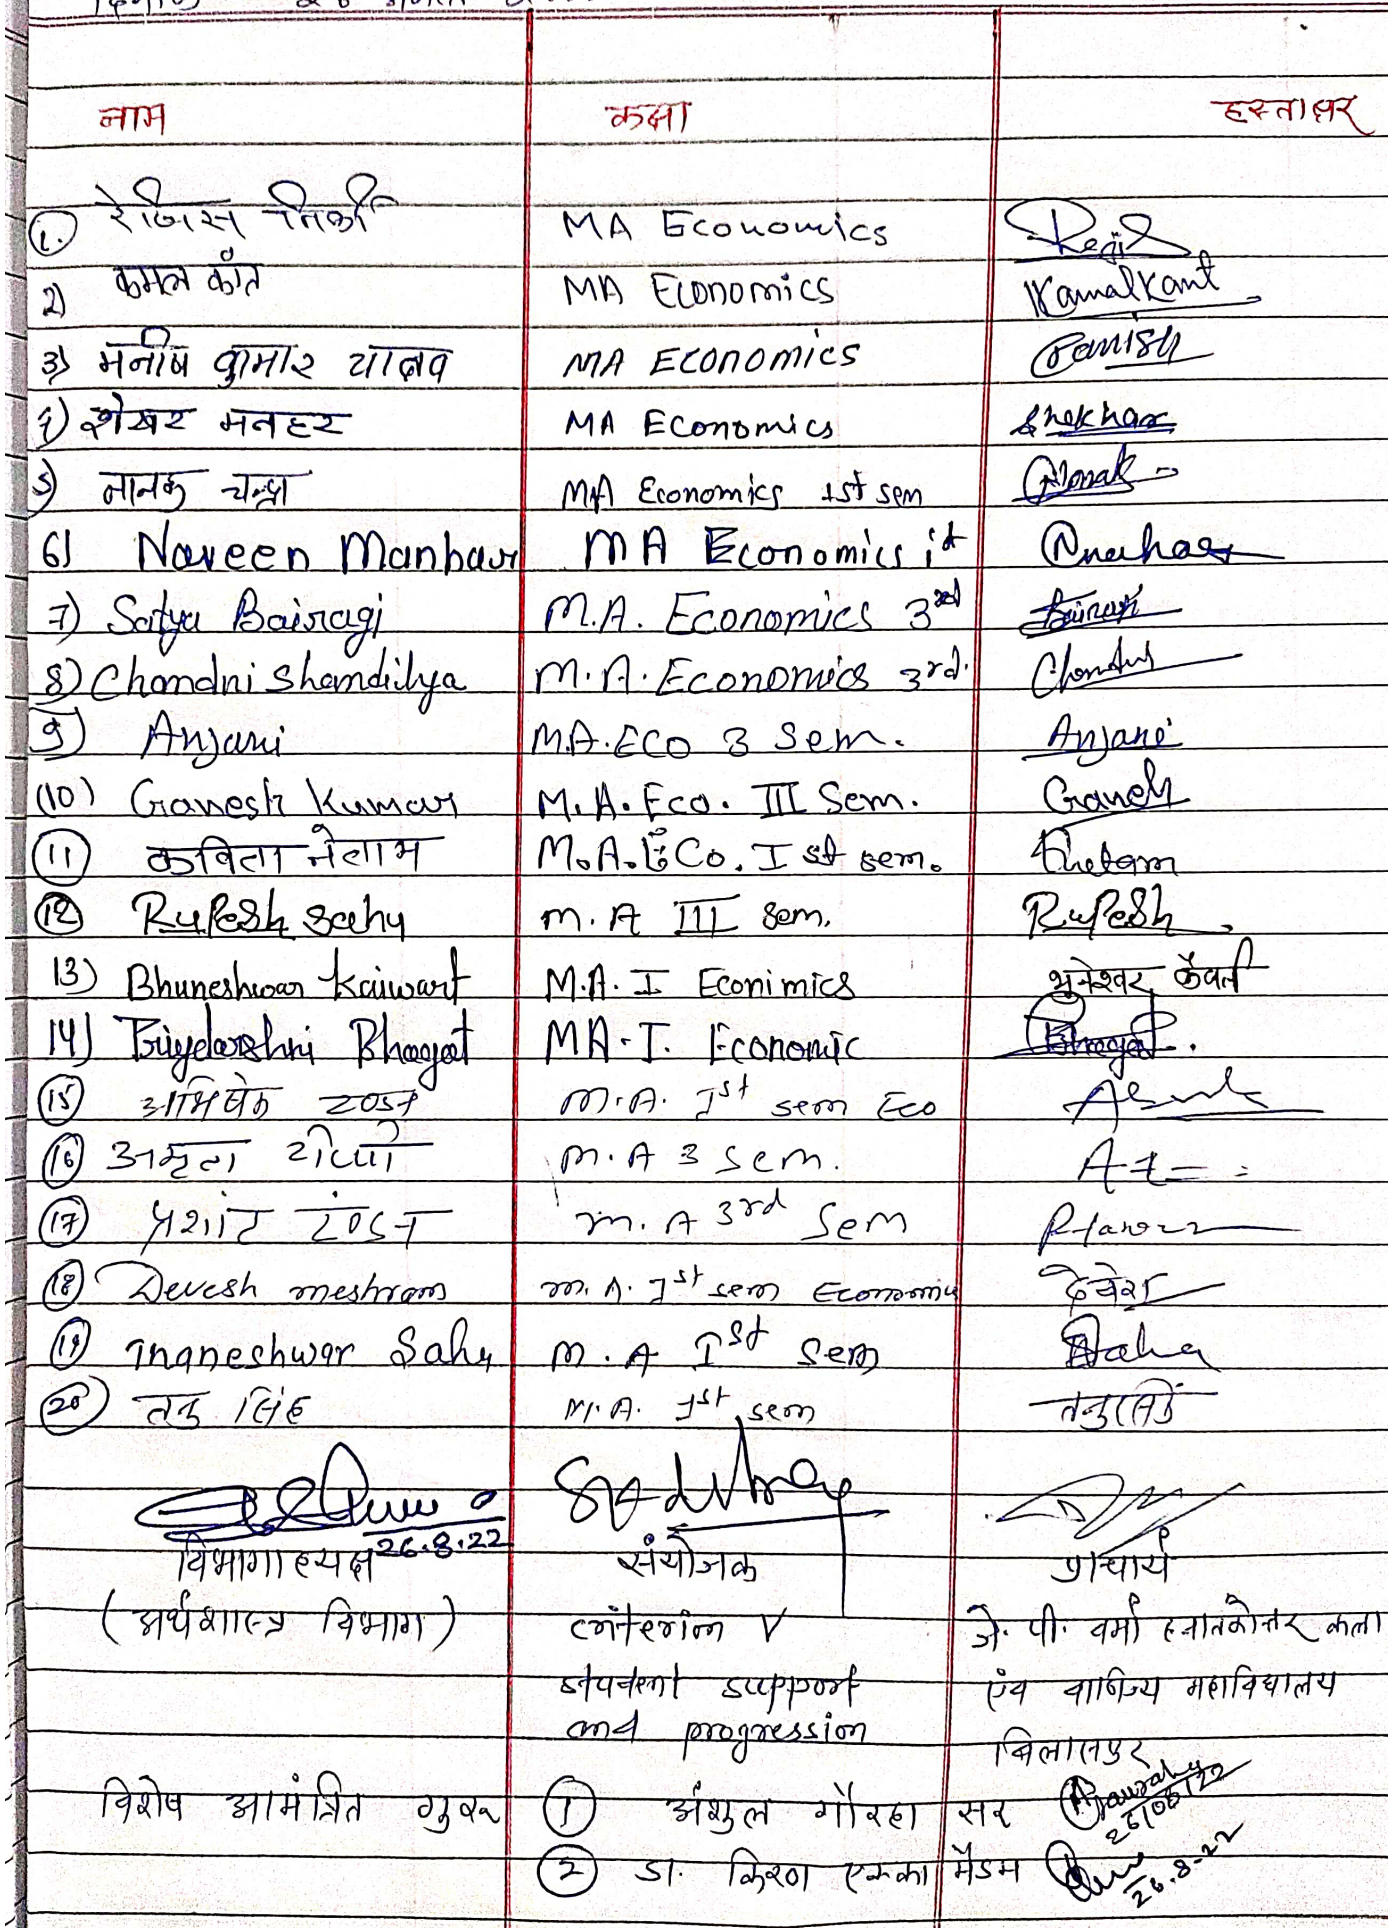 नाम कक्षा हस्ताक्षर
1. रेजिस तिर्की MA Economics Regis
2) कमल कांत MA Economics Kamalkant
3) मनीष कुमार यादव MA Economics Manish
4) शेखर मनहर MA Economics Shekhar
5) नानक चन्द्रा MA Economics 1st sem Nanak
6) Naveen Manhar MA Economics ist
7) Satya Bairagi M.A. Economics 3rd
8) Chandni Shandilya M.A. Economics 3rd.
9) Anjani M.A. ECO 3 Sem. Anjani
(10) Ganesh Kumar M.A. Eco. III Sem. Ganesh
11 कविता नेताम M.A. ECo. I st sem.
12 Rupesh Sahu M.A III Sem. Rupesh
13) Bhuneshwar Kaiwart M.A. I Econimics भुनेश्वर कैवर्त
14) Priydarshni Bhagat MA-I. Economic Bhagat
15 अभिषेक टण्डन M.A. Ist sem Eco
16 अमृता टोप्पो M.A 3 Sem.
17 प्रशांत टंडन M.A 3rd Sem
18 Devesh meshram M.A. Ist sem Economic देवेश
19 Gnaneshwar Sahu M.A Ist Sem Sahu
20 तनु सिंह M.A. Ist sem तनु सिंह
26.8.22
विभागाध्यक्ष संयोजक प्राचार्य
(अर्थशास्त्र विभाग) criterion V जे. पी. वर्मा स्नातकोत्तर कला
student support एंव वाणिज्य महाविद्यालय
and progression बिलासपुर
विशेष आमंत्रित गुरू 1 अंशुल गौरहा सर 26/08/22
2 डा. किरण एक्का मैडम 26.8.22